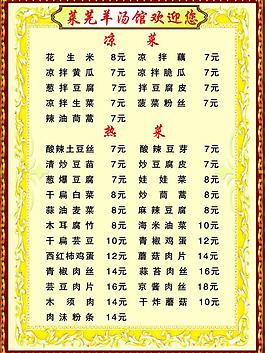 莱芜羊汤馆欢迎您
凉 菜
花生米 8元 凉拌藕 7元
凉拌黄瓜 7元 凉拌脆瓜 7元
葱拌豆腐 7元 凉拌豆皮 7元
凉拌生菜 7元 菠菜粉丝 7元
辣油茼蒿 7元
热 菜
酸辣土豆丝 7元 酸辣豆芽 7元
清炒豆苗 7元 炒豆腐皮 7元
葱爆豆腐 7元 娃娃菜 8元
干扁白菜 8元 炒茼蒿 8元
蒜油麦菜 8元 麻辣豆腐 8元
木耳腐竹 8元 海米油菜 10元
干扁芸豆 10元 青椒鸡蛋 12元
西红柿鸡蛋 12元 蘑菇肉片 14元
青椒肉丝 14元 蒜苔肉丝 16元
芸豆肉片 16元 京酱肉丝 18元
木须肉 14元 干炸蘑菇 10元
肉沫粉条 14元